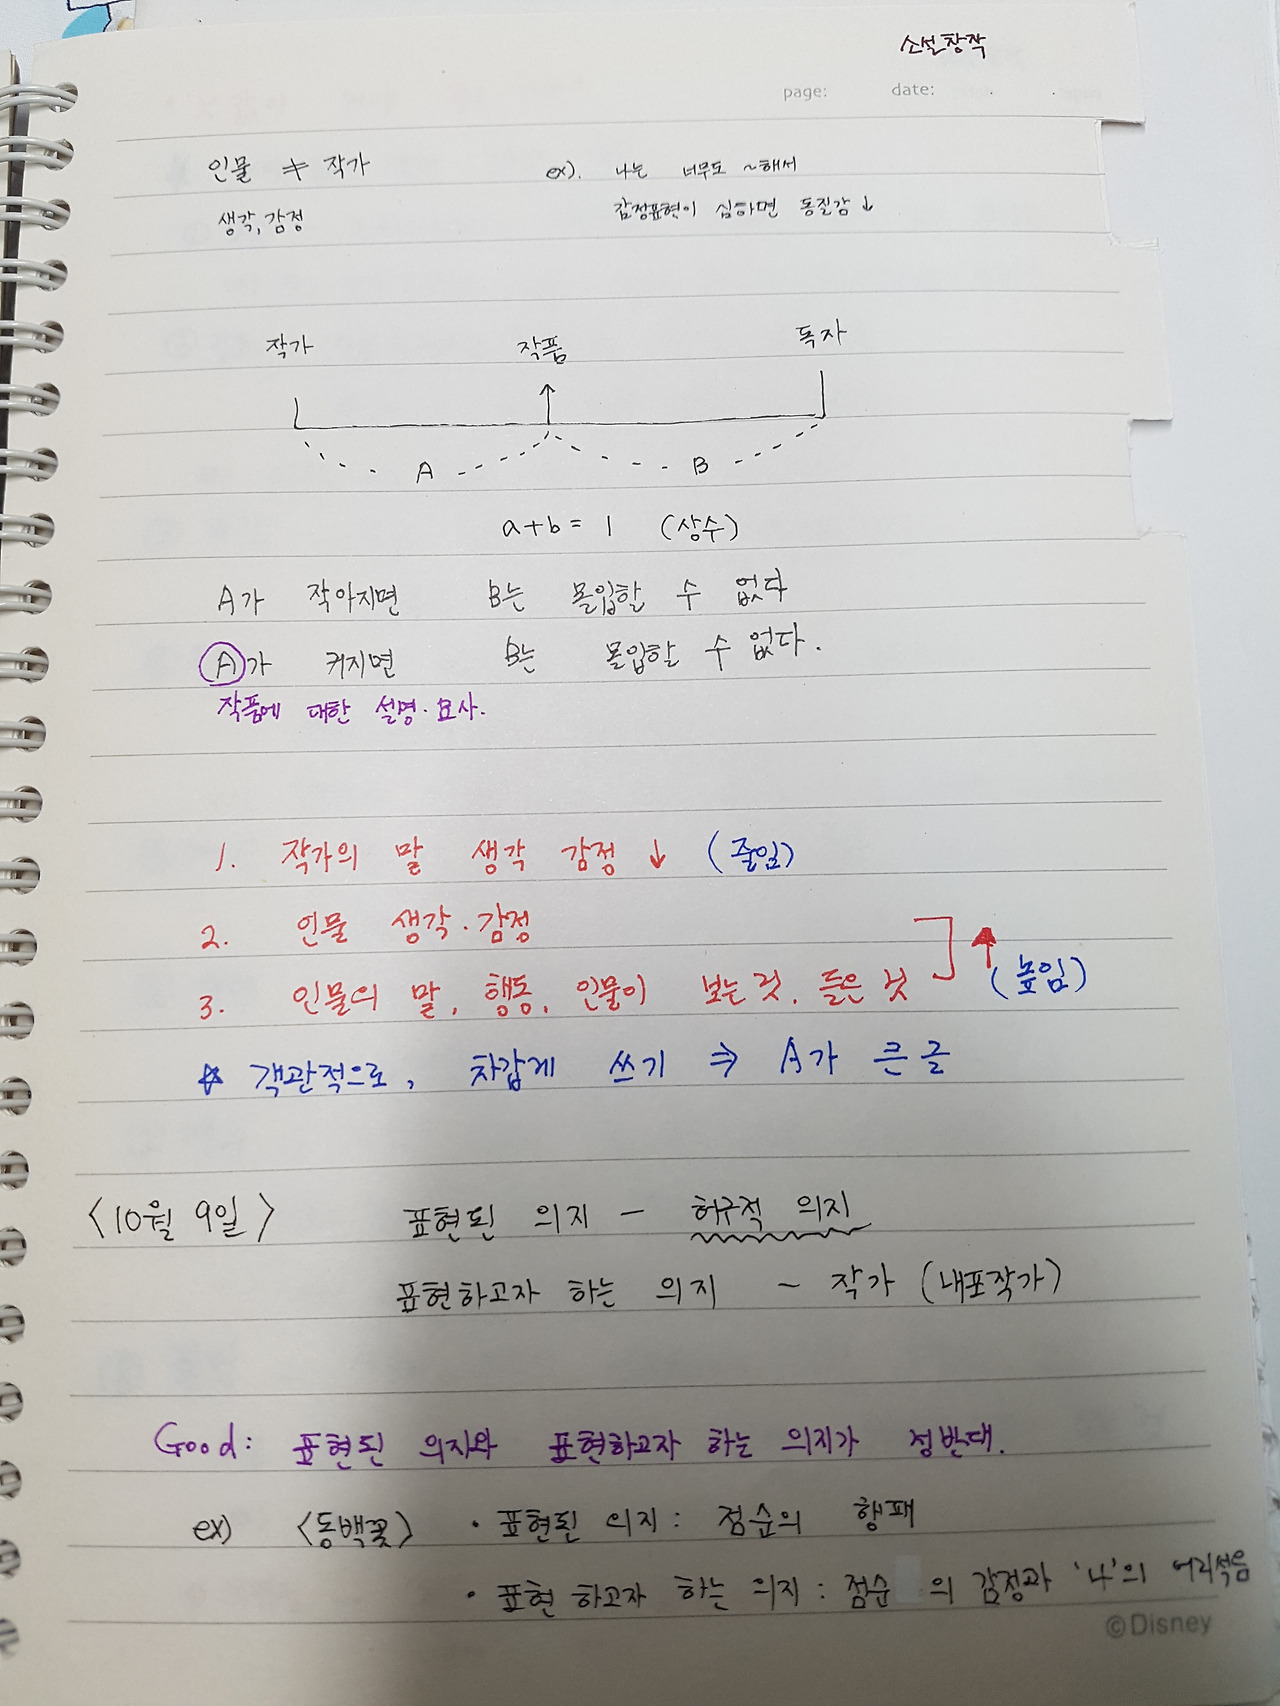 소설창작
page: date: . .
인물 ≠ 작가 ex). 나는 너무도 ~해서
생각, 감정 감정표현이 심하면 동질감 ↓
작가 작품 독자
A B
a+b = 1 (상수)
A가 작아지면 B는 몰입할 수 없다
A가 커지면 B는 몰입할 수 없다.
작품에 대한 설명·묘사.
1. 작가의 말 생각 감정 ↓ (줄임)
2. 인물 생각·감정
3. 인물의 말, 행동, 인물이 보는 것, 들은 것 ↑ (높임)
☆ 객관적으로, 차갑게 쓰기 ⇒ A가 큰 글
<10월 9일> 표현된 의지 - 허구적 의지
표현하고자 하는 의지 ~ 작가 (내포작가)
Good: 표현된 의지와 표현하고자 하는 의지가 정반대.
ex) <동백꽃> · 표현된 의지 : 점순의 행패
· 표현 하고자 하는 의지 : 점순 의 감정과 '나'의 어리석음
©Disney